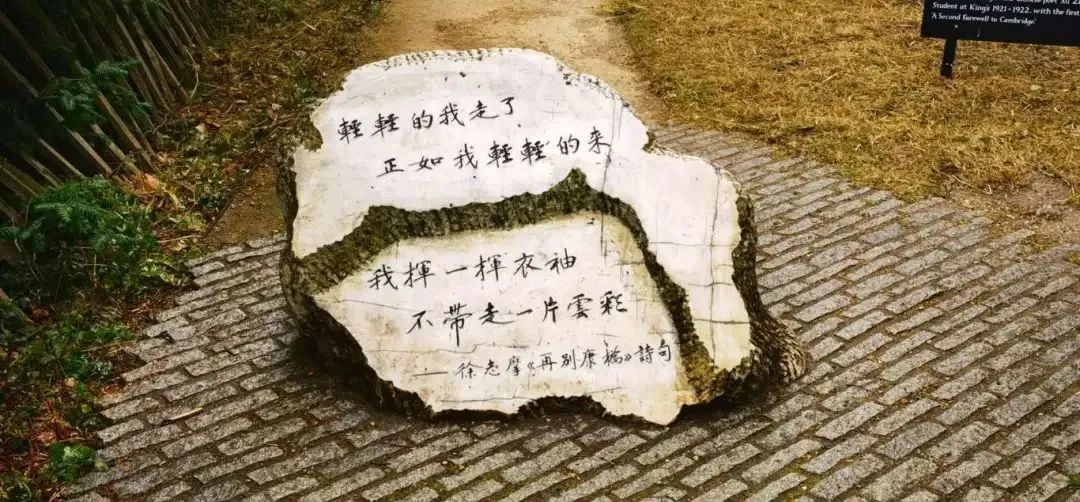 輕輕的我走了
正如我輕輕的来
我揮一揮衣袖
不帶走一片雲彩
——徐志摩《再别康橋》詩句
poet Xu
Student at King's 1921-1922, with the first
'A Second Farewell to Cambridge'